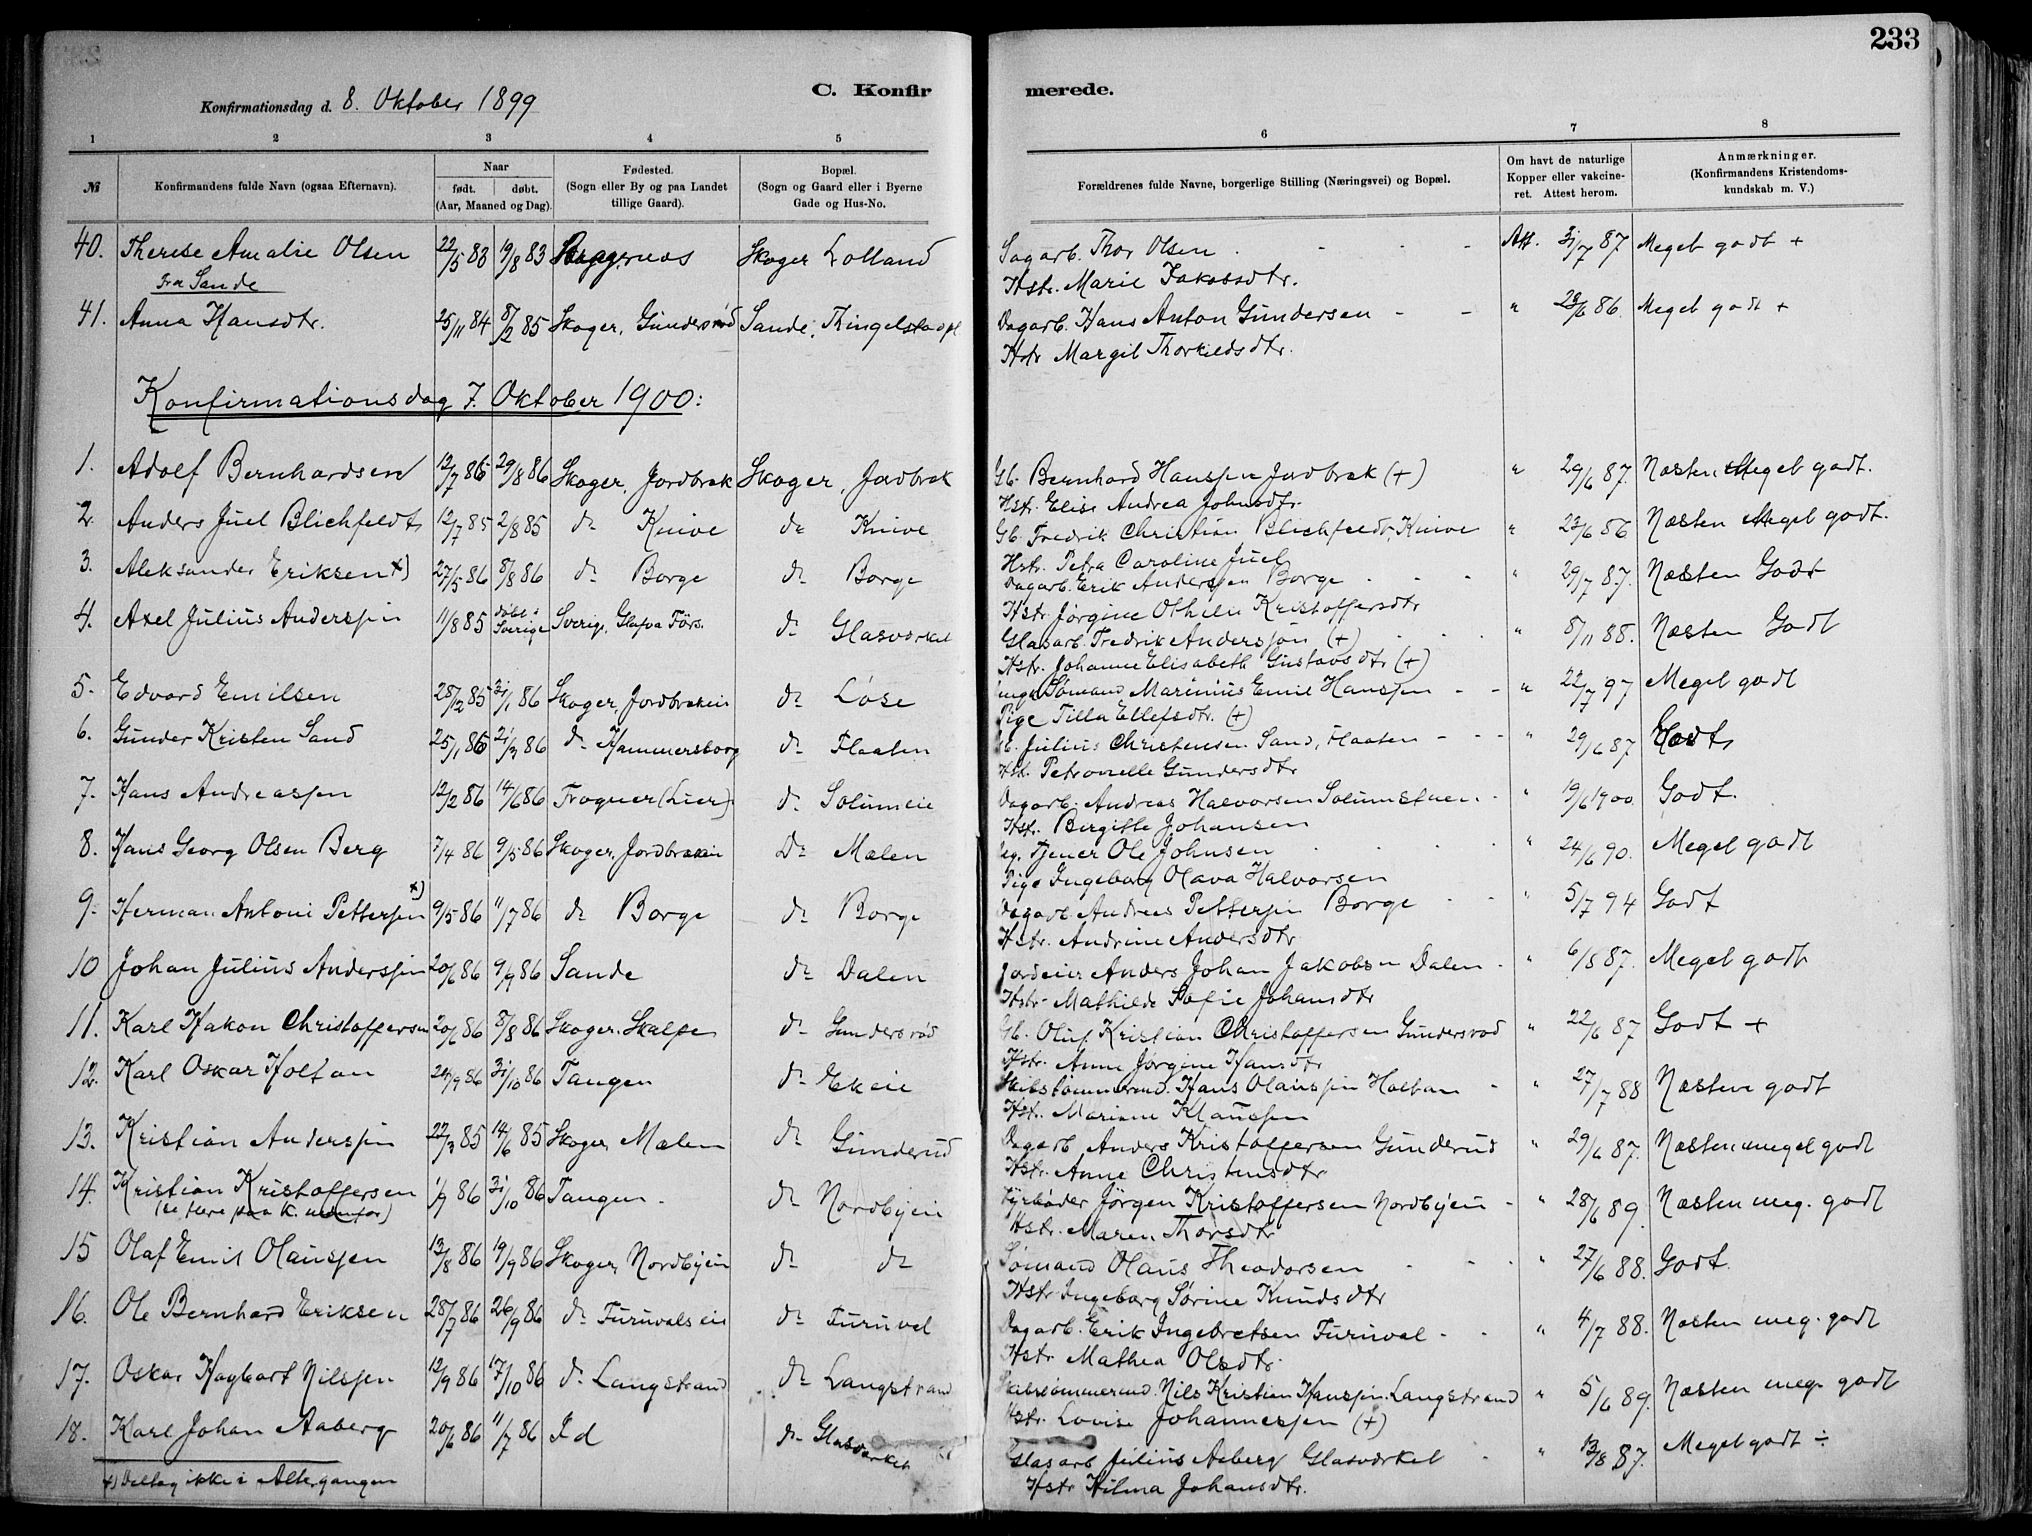 233
Konfirmationsdag d. 8. Oktober 1899
C. Konfirmerede.
1 2 3 4 5 6 7 8
№ Konfirmandens fulde Navn (ogsaa Efternavn). Naar født. døbt. (Aar, Maaned og Dag). Fødested. (Sogn eller By og paa Landet tillige Gaard). Bopæl. (Sogn og Gaard eller i Byerne Gade og Hus-No. Forældrenes fulde Navne, borgerlige Stilling (Næringsvei) og Bopæl. Om havt de naturlige Kopper eller vakcineret. Attest herom. Anmærkninger. (Konfirmandens Kristendomskundskab m. V.)
40. Therese Amalie Olsen 22/5 83 19/8 83 Skoger Lolland Sagarb. Thor Olsen Att. 31/7 87 Meget godt +
Fra Sande Hstr. Marie Jakobsdtr.
41. Anna Hansdtr. 25/11 84 8/2 85 Skoger, Gundersrød Sande, Thingelstadpl Dagarb. Hans Anton Gundersen " 23/6 86. Meget godt +
Hstr Margit Thorkildsdtr.
Konfirmationsdag 7. Oktober 1900:
1. Adolf Bernhardsen 12/7 86 29/8 86 Skoger, Jordbræk Skoger, Jordbræk Gb. Bernhard Hanssen Jordbræk (+) " 29/6 87. Næsten Meget godt.
Hstr. Elise Andrea Johnsdtr.
2. Anders Juel Blichfeldt 12/7 85 2/8 85 do Knive do Knive Gb. Fredrik Christian Blichfeldt, Knive " 23/6 86 Næsten Meget godt.
Hstr. Petra Caroline Juel
3. Aleksander Eriksen +) 27/5 86 8/8 86 do Borge do Borge Dagarb. Erik Anderssen Borge " 29/7 87. Næsten Godt
Hstr. Jørgine Othilie Kristoffersdtr
4. Axel Julius Anderssen 11/8 85 døbt i Sverige Sverig, Glafva Förs. do Glasværket Glasarb. Fredrik Andersson (+) " 8/11 88. Næsten Godt
Hstr. Johanne Elisabeth Gustavsdtr (+)
5. Edvard Emilsen 28/12 85 31/1 86 Skoger, Jordbrækeie do Løse Ungk. Sømand Marinius Emil Hanssen " 22/7 97 Meget godt
Pige Tilla Ellefsdtr. (+)
6. Gunder Kristen Sand 25/1 86 21/3 86 do Hammersborg do Flaaten Gb. Julius Christensen Sand, Flaaten " 29/6 87 Godt
Hst. Petronelle Gundersdtr
7. Hans Andreassen 12/2 86 14/6 86 Frogner (Lier) do Solumeie Dagarb. Andreas Halvorsen Solumstuen " 19/6 1900. Godt.
Hstr. Bergitte Johansen
8. Hans Georg Olsen Berg 7/4 86 9/5 86 Skoger, Jordbrækeie Do Mælen Ug. Tjener Ole Johnsen " 24/6 90. Meget godt
Pige Ingeborg Olava Halvorsen
9. Herman Antoni Petterssen +) 9/5 86 11/7 86 do Borge do Borge Dagarb Andreas Petterssen Borge " 5/7 94 Godt
Hstr. Andrine Andersdtr.
10 Johan Julius Anderssen 20/6 86 9/9 86 Sande do Dalen Jordeier Anders Johan Jakobsen Dalen " 6/8 87. Meget godt
Hstr. Mathilde Sofie Johansdtr
11. Karl Hakon Christoffersen 20/6 86 8/8 86 Skoger, Skalpe do Gundersrød Gb. Oluf Kristian Christoffersen Gundersrød " 22/6 87 Godt +
Hstr. Anne Jørgine Hansdtr
12. Karl Oskar Holtan 24/9 86 31/10 86 Tangen do Ekeie Skibstømmermd. Hans Olaussen Holtan " 27/7 88 Næsten godt
Hst. Mariane Klaussen
13. Kristian Anderssen 22/3 85 14/6 85 Skoger, Mælen do Gunderud Dagarb Anders Kristoffersen Gunderud " 29/6 87. Næsten meget godt
Hstr. Anne Christensdtr
14. Kristian Kristoffersen 1/9 86 31/10 86 Tangen. do Nordbyen Fyrbøder Jørgen Kristoffersen Nordbyen " 28/6 89. Næsten meg. godt
(se flere paa K. nedenfor) Hstr. Maren Thorsdtr
15 Olaf Emil Olaussen 13/8 86 19/9 86 Skoger, Nordbyen do do Sømand Olaus Theodorsen " 27/6 88. Godt.
Hstr Ingeborg Sørine Knudsdtr
16. Ole Bernhard Eriksen 28/7 86 26/9 86 do Furuvaleie do Furuval Dagarb. Erik Ingebretsen Furuval " 4/7 88. Næsten meg. godt
Hstr Mathea Olsdtr
17. Oskar Hagbart Nilssen 12/9 86 17/10 86 do Langstrand do Langstrand Skibstømmermd. Nils Kristian Hanssen Langstrand " 5/6 89. Næsten meg godt
Hstr. Lovise Johannessen (+)
18. Karl Johan Aaberg 20/6 86 11/7 86 Id do Glasværket Glasarb Julius Aaberg Glasværket " 13/8 87. Meget godt ÷
Hstr Hilma Johansdtr.
+) Deltog ikke i Altergangen